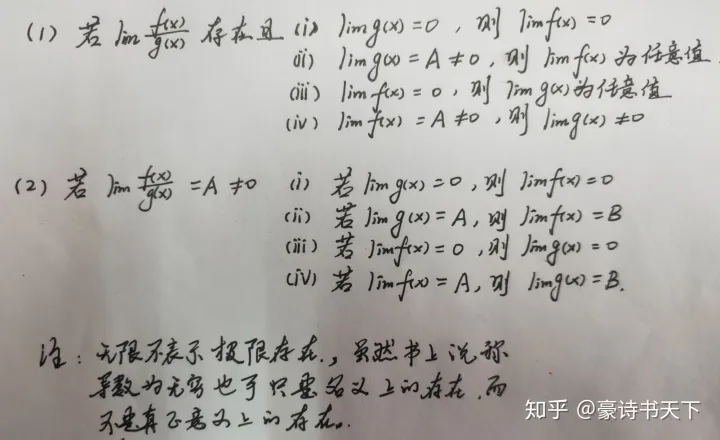 (1) 若 lim f(x)/g(x) 存在且 (i) lim g(x) = 0 , 则 lim f(x) = 0
(ii) lim g(x) = A ≠ 0 , 则 lim f(x) 为任意值
(iii) lim f(x) = 0 , 则 lim g(x) 为任意值
(iv) lim f(x) = A ≠ 0 , 则 lim g(x) ≠ 0
(2) 若 lim f(x)/g(x) = A ≠ 0 (i) 若 lim g(x) = 0 , 则 lim f(x) = 0
(ii) 若 lim g(x) = A , 则 lim f(x) = B
(iii) 若 lim f(x) = 0 , 则 lim g(x) = 0
(iv) 若 lim f(x) = A , 则 lim g(x) = B.
注: 无限不表示极限存在., 虽然书上说称
导数为无穷也可 只是名义上的存在, 而
不是真正意义上的存在.
知乎 @豪诗书天下